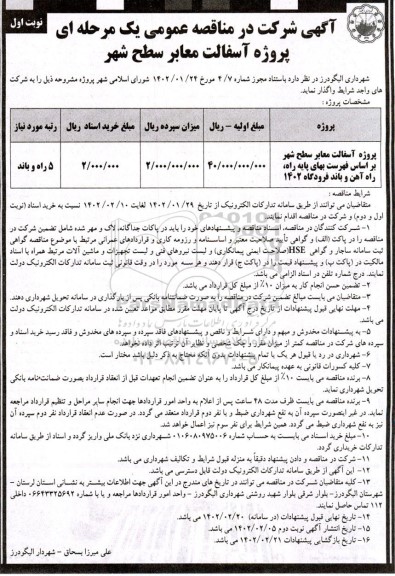 نوبت اول
آگهی شرکت در مناقصه عمومی یک مرحله ای
پروژه آسفالت معابر سطح شهر
شهرداری الیگودرز در نظر دارد باستناد مجوز شماره ۴/۷ مورخ ۱۴۰۲/۰۱/۲۴ شورای اسلامی شهر پروژه مشروحه ذیل را به شرکت
های واجد شرایط واگذار نماید.
مشخصات پروژه :
پروژه
مبلغ اولیه – ریال
مبلغ سپرده ریال
مبلغ خرید اسناد ریال
رتبه مورد نیاز
پروژه آسفالت معابر سطح شهر
بر اساس فهرست بهای پایه راه،
راه آهن و باند فرودگاه ۱۴۰۲
۴۰/۰۰۰/۰۰۰/۰۰۰
۲/۰۰۰/۰۰۰/۰۰۰
۲/۰۰۰/۰۰۰
۵ راه و باند
شرایط مناقصه :
متقاضیان می توانند از طریق سامانه تدارکات الکترونیک از تاریخ ۱۴۰۲/۰۱/۲۹ لغایت ۱۴۰۲/۰۲/۱۰ نسبت به خرید اسناد (نوبت
اول و دوم) و شرکت در مناقصه اقدام نمایند.
۱– شرکت کنندگان در مناقصه، اسناد مناقصه و پیشنهادهای خود را باید در پاکات جداگانه، لاک و مهر شده شامل تضمین شرکت در
مناقصه را در پاکت (الف) و گواهی تأیید صلاحیت معتبر و اساسنامه و رزومه کاری و قراردادهای عمرانی مرتبط با موضوع مناقصه گواهی
ثبت سامانه ساجار و گواهی HSE(صلاحیت ایمنی پیمانکاری) و لیست نیروهای فنی و لیست تجهیزات و ماشین آلات مرتبط همراه با اسناد
مالکیت در (پاکت ب) و پیشنهاد قیمت را در (پاکت ج) قرار دهند و هر سه مورد را در وقت قانونی ثبت سامانه تدارکات الکترونیک دولت
نمایند. درج شماره تلفن در اسناد الزامی می باشد.
۲– تضمین حسن انجام کار به میزان ۱۰٪ از مبلغ کل قرارداد می باشد.
۳– متقاضیان می بایست مبالغ تضمین شرکت در مناقصه را به صورت ضمانتنامه بانکی پس از بارگذاری در سامانه تحویل شهرداری دهند.
۴– مهلت نهایی قبول پیشنهادات از تاریخ درج آگهی تا پایان مهلت مقرر مطابق مواعد تعیین شده در سامانه تدارکات الکترونیک دولت
می باشد.
۵– به پیشنهادات مخدوش و مبهم و دارای شرایط و ناقص و پیشنهادهای فاقد سپرده و سپرده های مخدوش و فاقد رسید خرید اسناد و
سپرده های شرکت در مناقصه کمتر از میزان مقرر و چک شخصی و نظایر آن ترتیب اثر داده نخواهد.
۶– شهرداری در رد یا قبول هر یک یا تمام پیشنهادات بدون آنکه محتاج به ذکر دلیل باشد مختار است.
۷– کلیه کسورات قانونی به عهده پیمانکار می باشد.
۸– برنده مناقصه می بایست ۱۰٪ از مبلغ کل قرارداد را به عنوان تضمین انجام تعهدات قبل از انعقاد قرارداد بصورت ضمانتنامه بانکی
تحویل شهرداری نماید.
۹– برنده مناقصه می بایست ظرف مدت ۴۸ ساعت پس از اعلام به واحد امور قراردادها جهت انجام سایر مراحل و تنظیم قرارداد مراجعه
نماید. در غیر اینصورت سپرده آن به نفع شهرداری ضبط و با نفر دوم قرارداد منعقد می گردد. در صورت عدم انعقاد قرارداد نفر دوم سپرده آن
نیز به نفع شهرداری ضبط می گردد. همین شرایط برای نفر سوم نیز اعمال خواهد شد.
۱۰– مبلغ خرید اسناد می بایست به حساب شماره ۰۱۰۶۰۸۰۹۷۵۰۰۶ شهرداری نزد بانک ملی واریز گردد و اسناد از طریق سامانه
تدارکات خریداری گردد.
۱۱– شرکت در مناقصه و دادن پیشنهاد دقیقاً به منزله قبول شرایط و تکالیف شهرداری می باشد.
۱۲– این آگهی از طریق سامانه تدارکات الکترونیک دولت قابل دسترسی می باشد.
۱۳– کلیه متقاضیان شرکت در مناقصه می توانند در تاریخ های مندرج در این آگهی جهت اطلاعات بیشتر به نشانی استان لرستان –
شهرستان الیگودرز– بلوار شرقی بلوار شهید روشنی شهرداری الیگودرز – واحد امور قراردادها مراجعه و یا با شماره ۰۶۶۴۳۳۲۵۶۴۲ داخلی
۱۱۲ تماس حاصل نمایند.
۱۴– تاریخ نهایی قبول پیشنهادات (در سامانه) ۱۴۰۲/۰۲/۲۰ می باشد.
۱۵– تاریخ انتشار آگهی نوبت دوم ۱۴۰۲/۰۲/۰۵ می باشد.
۱۶– تاریخ بازگشایی پیشنهادات ۱۴۰۲/۰۲/۲۱ می باشد.
علی میرزا بسحاق – شهردار الیگودرز